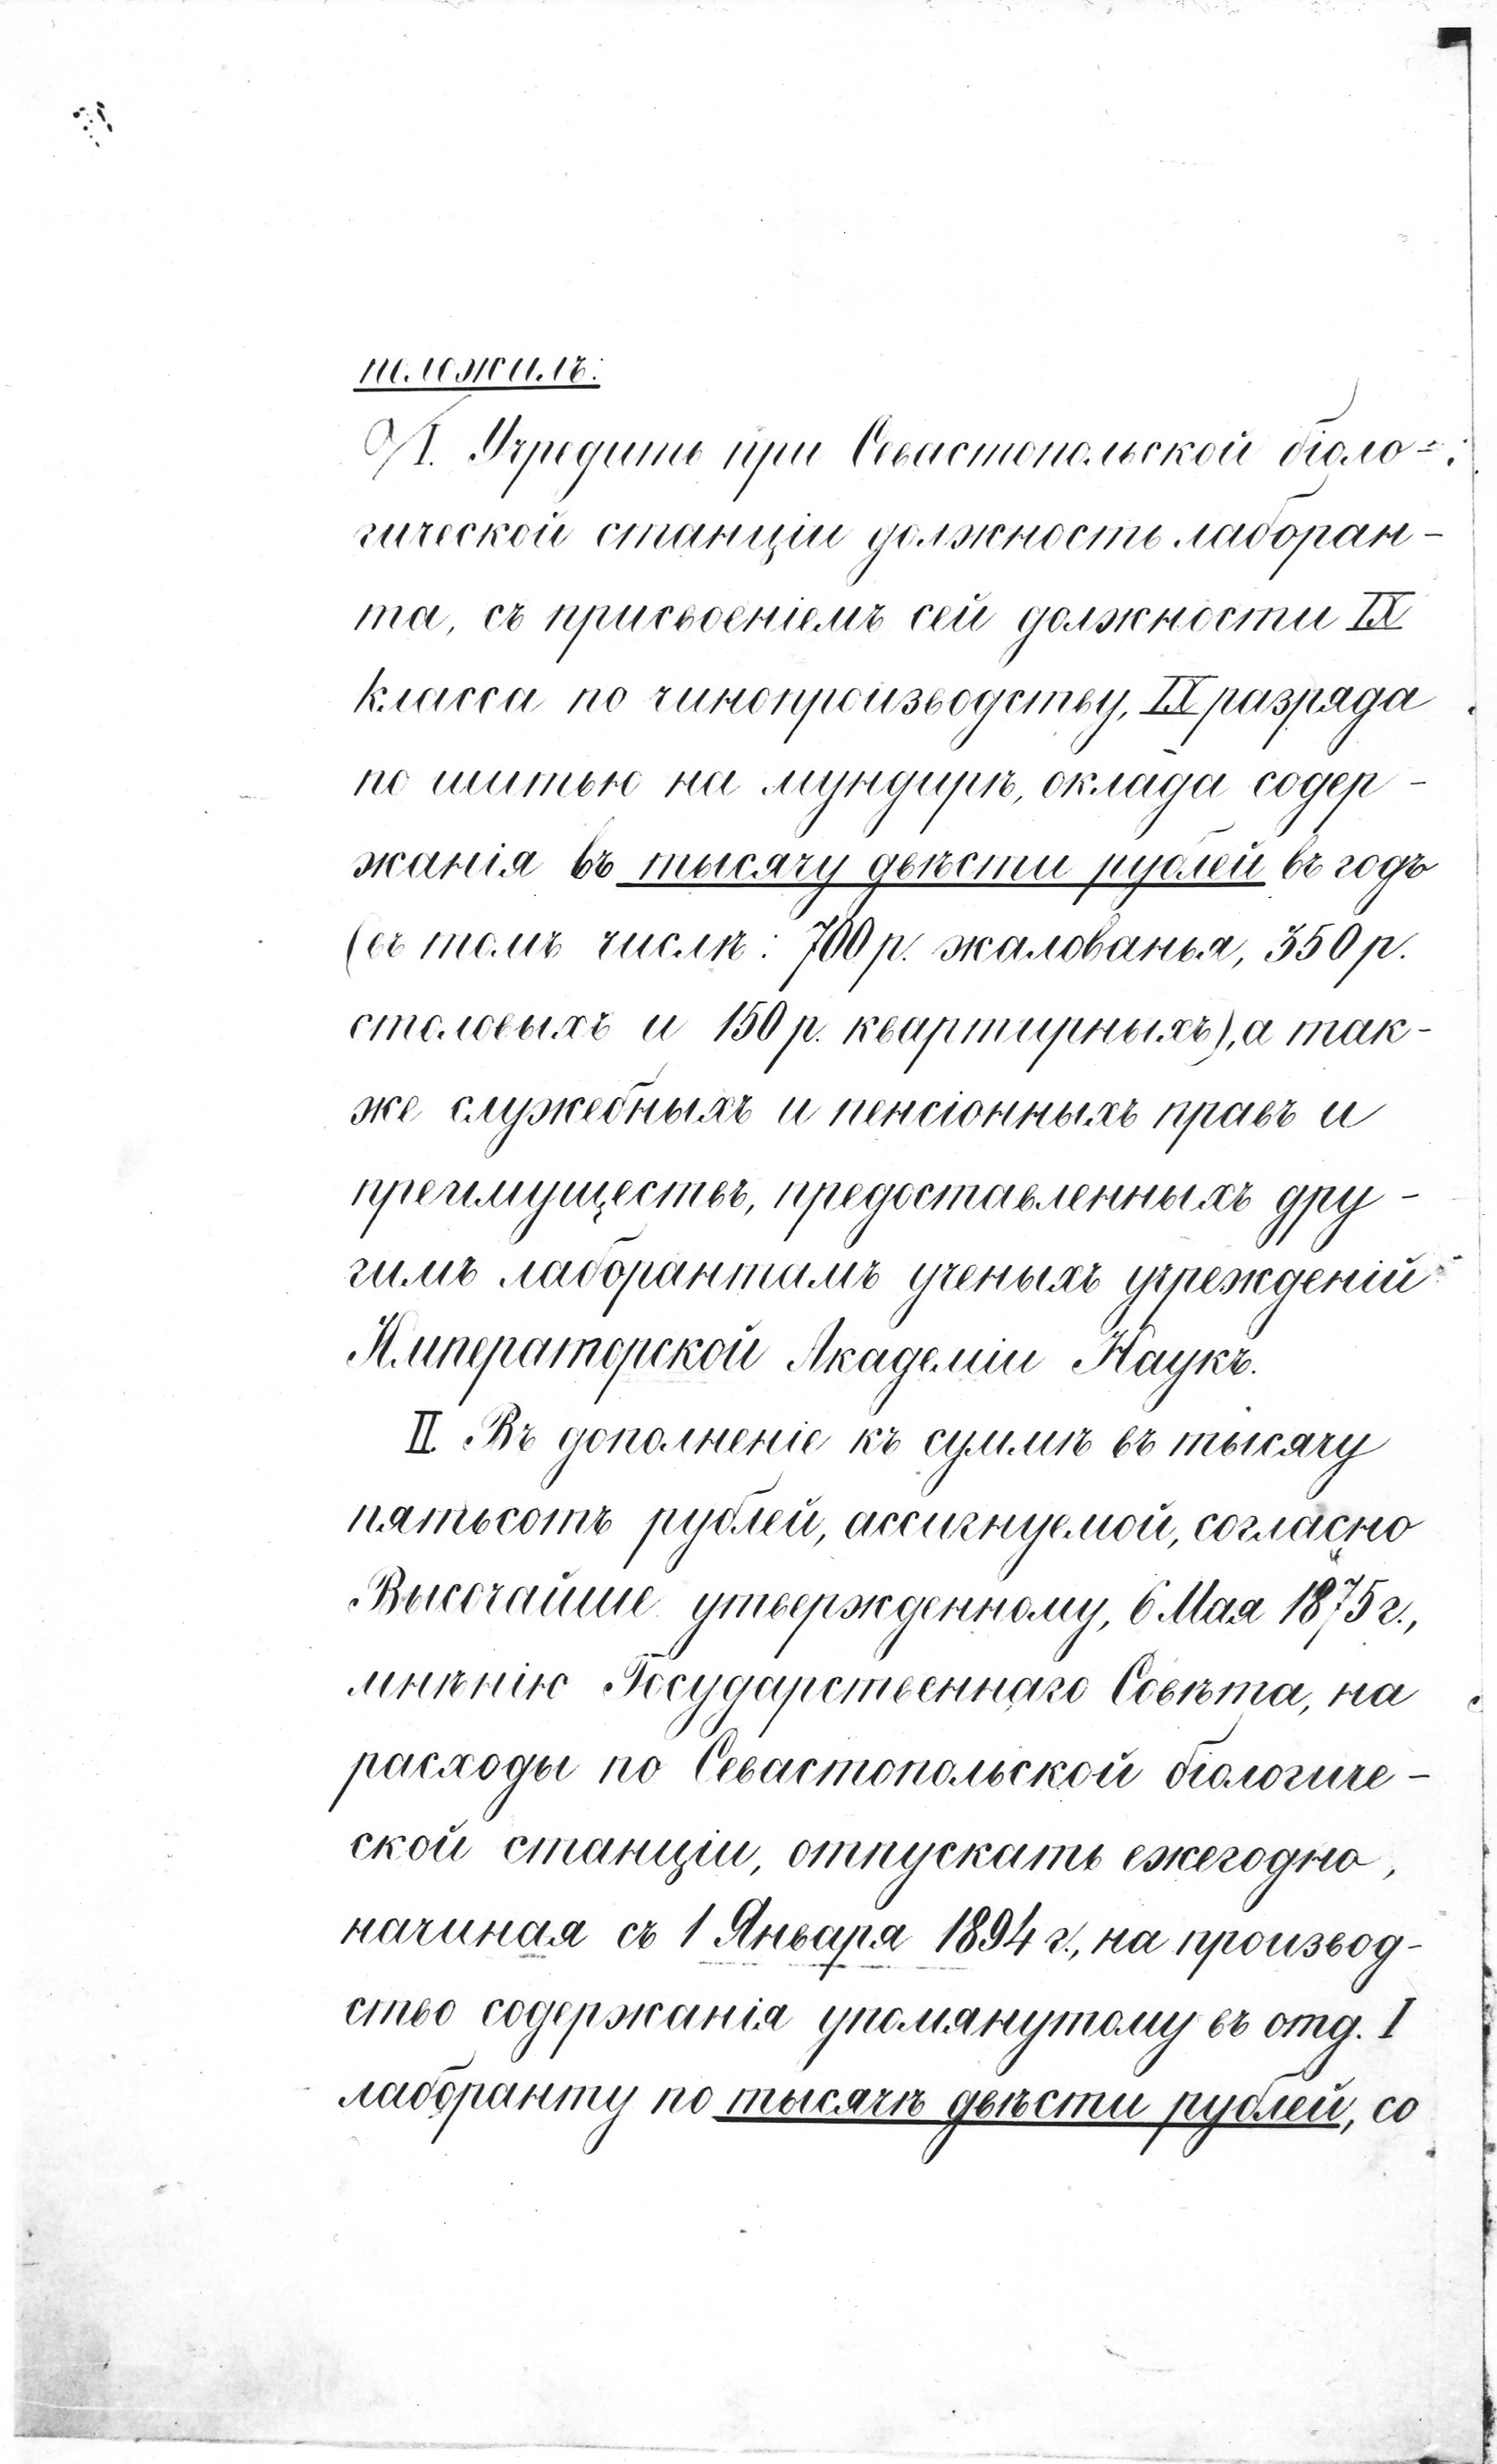 положилъ:
I. Учредить при Севастопольской біоло=
гической станціи должность лаборан-
та, съ присвоеніемъ сей должности IX
класса по чинопроизводству, IX разряда
по шитью на мундирѣ, оклада содер-
жанія въ тысячу двѣсти рублей въ годъ
(въ томъ числѣ: 700 р. жалованья, 350 р.
столовыхъ и 150 р. квартирныхъ), а так-
же служебныхъ и пенсіонныхъ правъ и
преимуществъ, предоставленныхъ дру-
гимъ лаборантамъ ученыхъ учрежденій
Императорской Академіи Наукъ.
II. Въ дополненіе къ суммѣ въ тысячу
пятьсотъ рублей, ассигнуемой, согласно
Высочайше утвержденному, 6 Мая 1875 г.,
мнѣнію Государственнаго Совѣта, на
расходы по Севастопольской біологиче-
ской станціи, отпускать ежегодно,
начиная съ 1 Января 1894 г., на производ-
ство содержанія упомянутому въ отд. I
лаборанту по тысячѣ двѣсти рублей, со